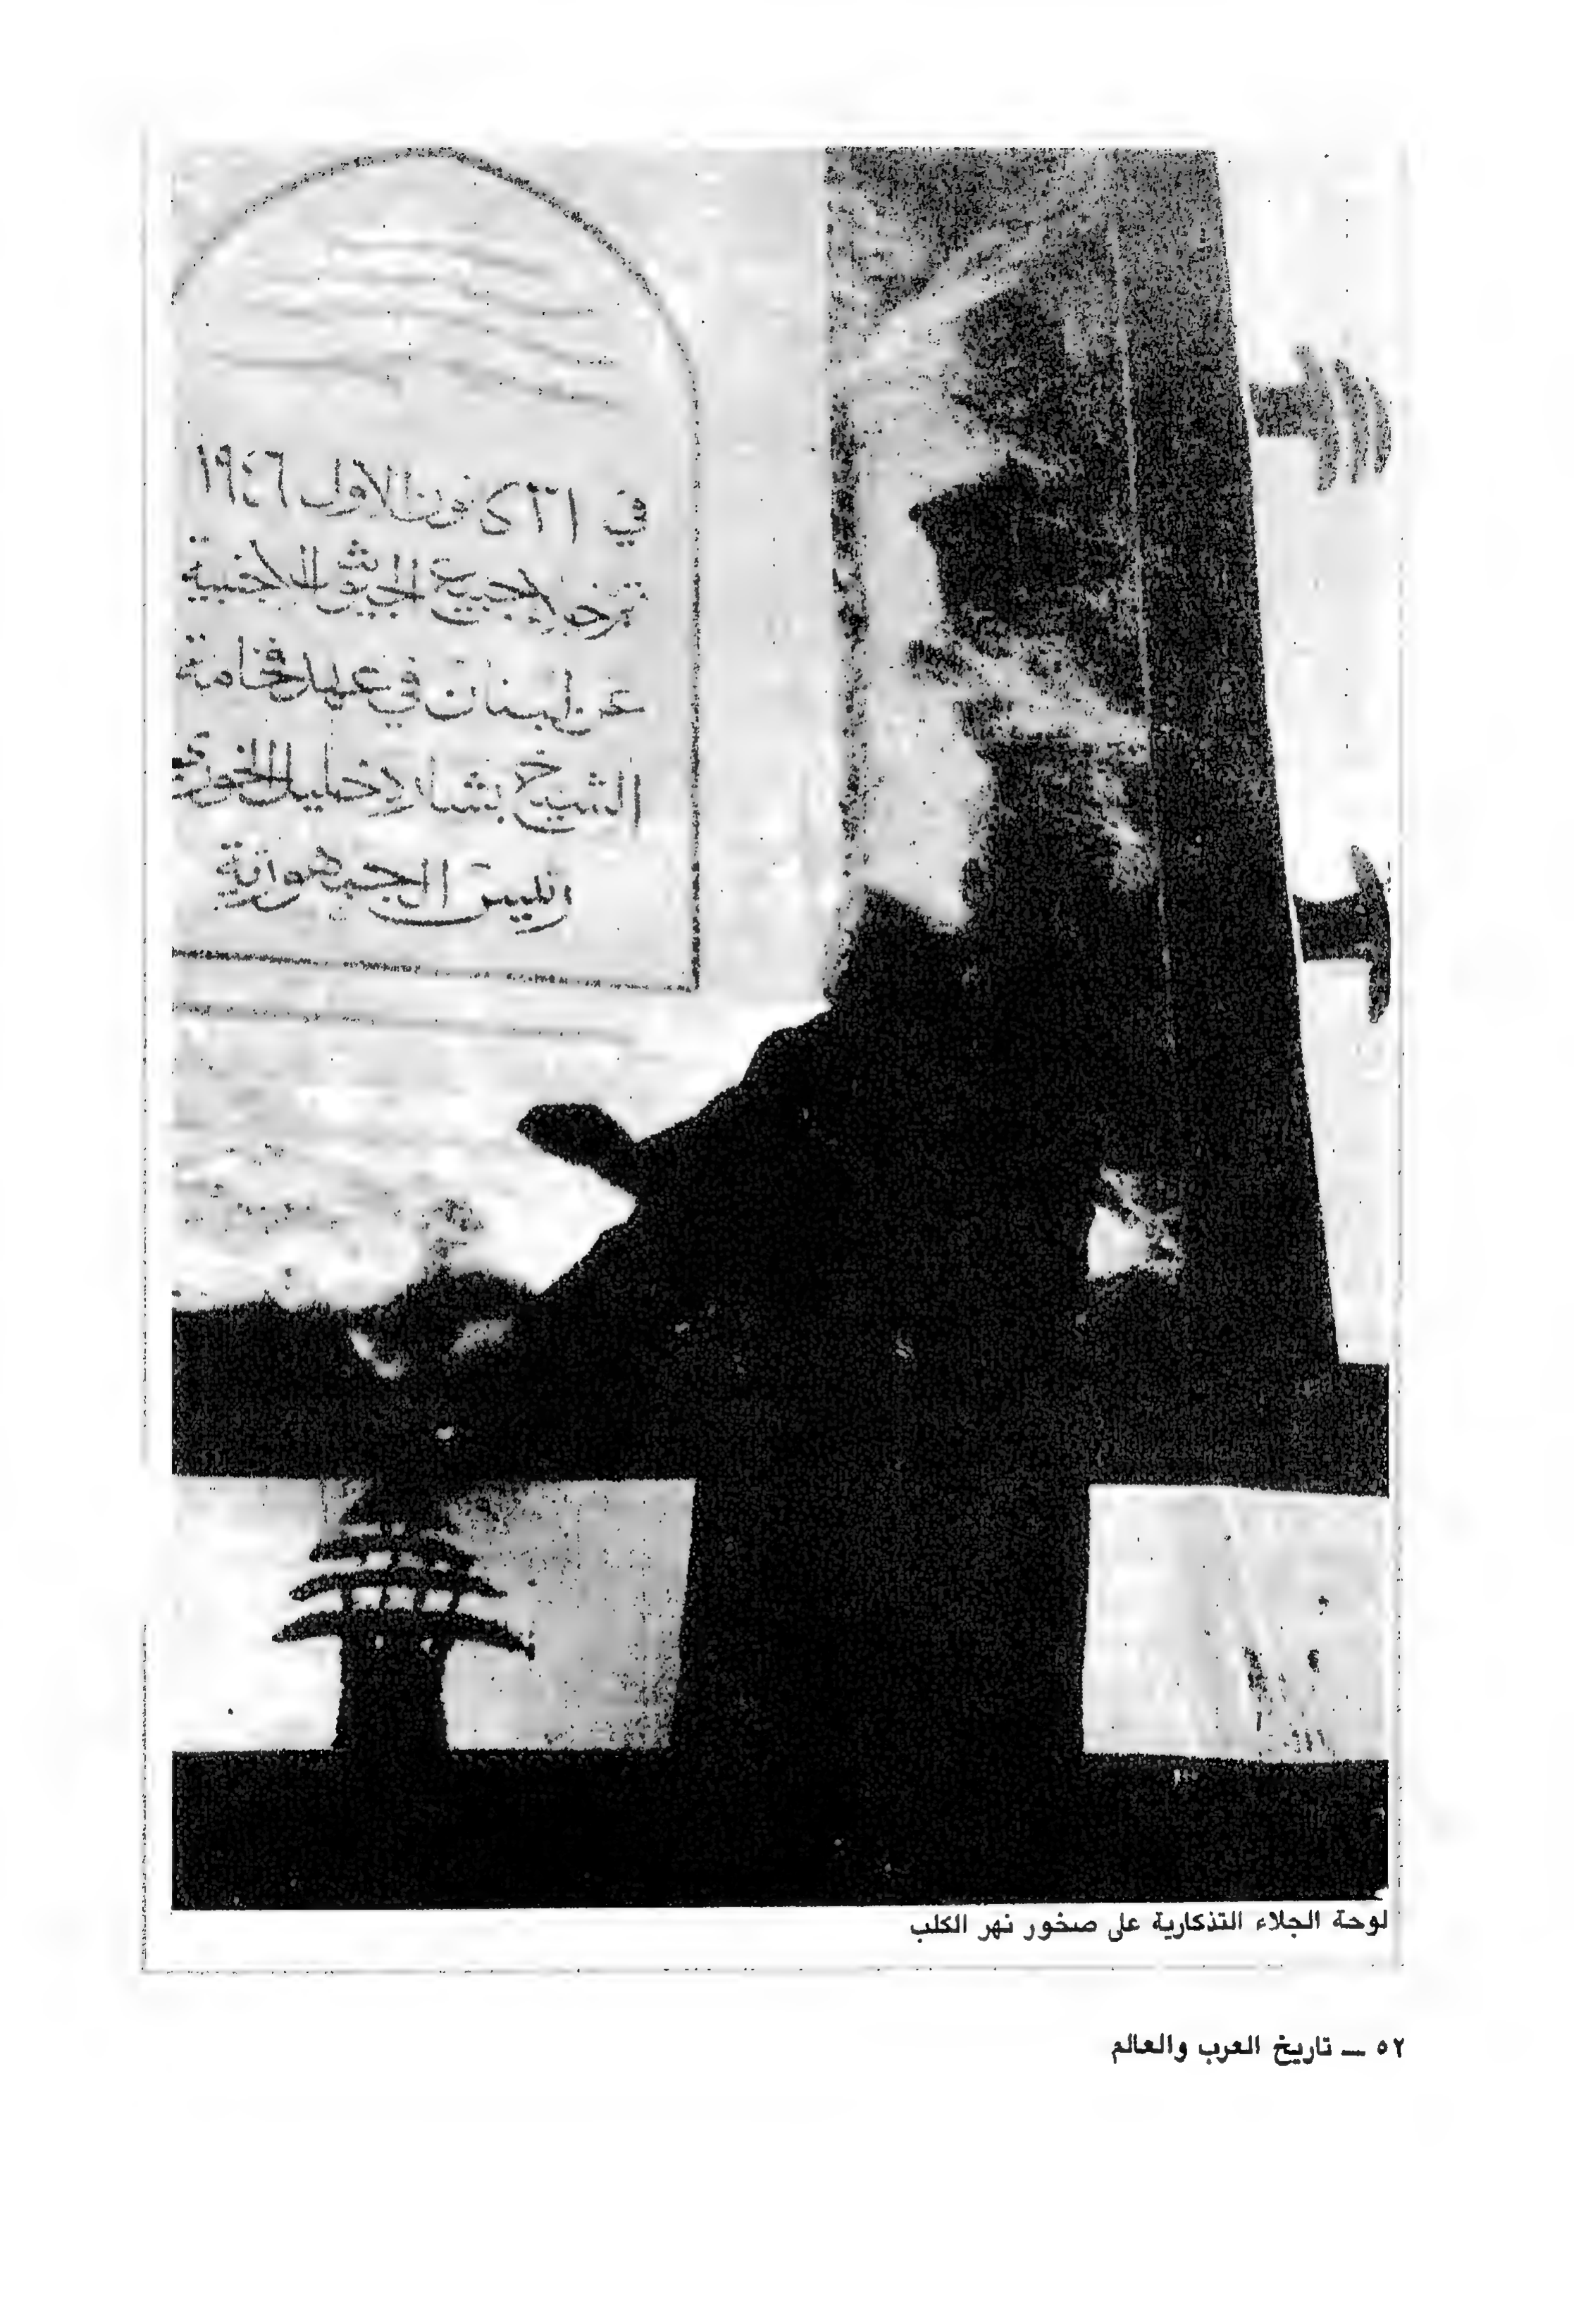 في ٣١ كانون الاول ١٩٤٦
تم جلاء جميع الجيوش الاجنبية
عن لبنان في عهد فخامة
الشيخ بشاره خليل الخوري
رئيس الجمهورية
لوحة الجلاء التذكارية على صخور نهر الكلب
٥٢ — تاريخ العرب والعالم